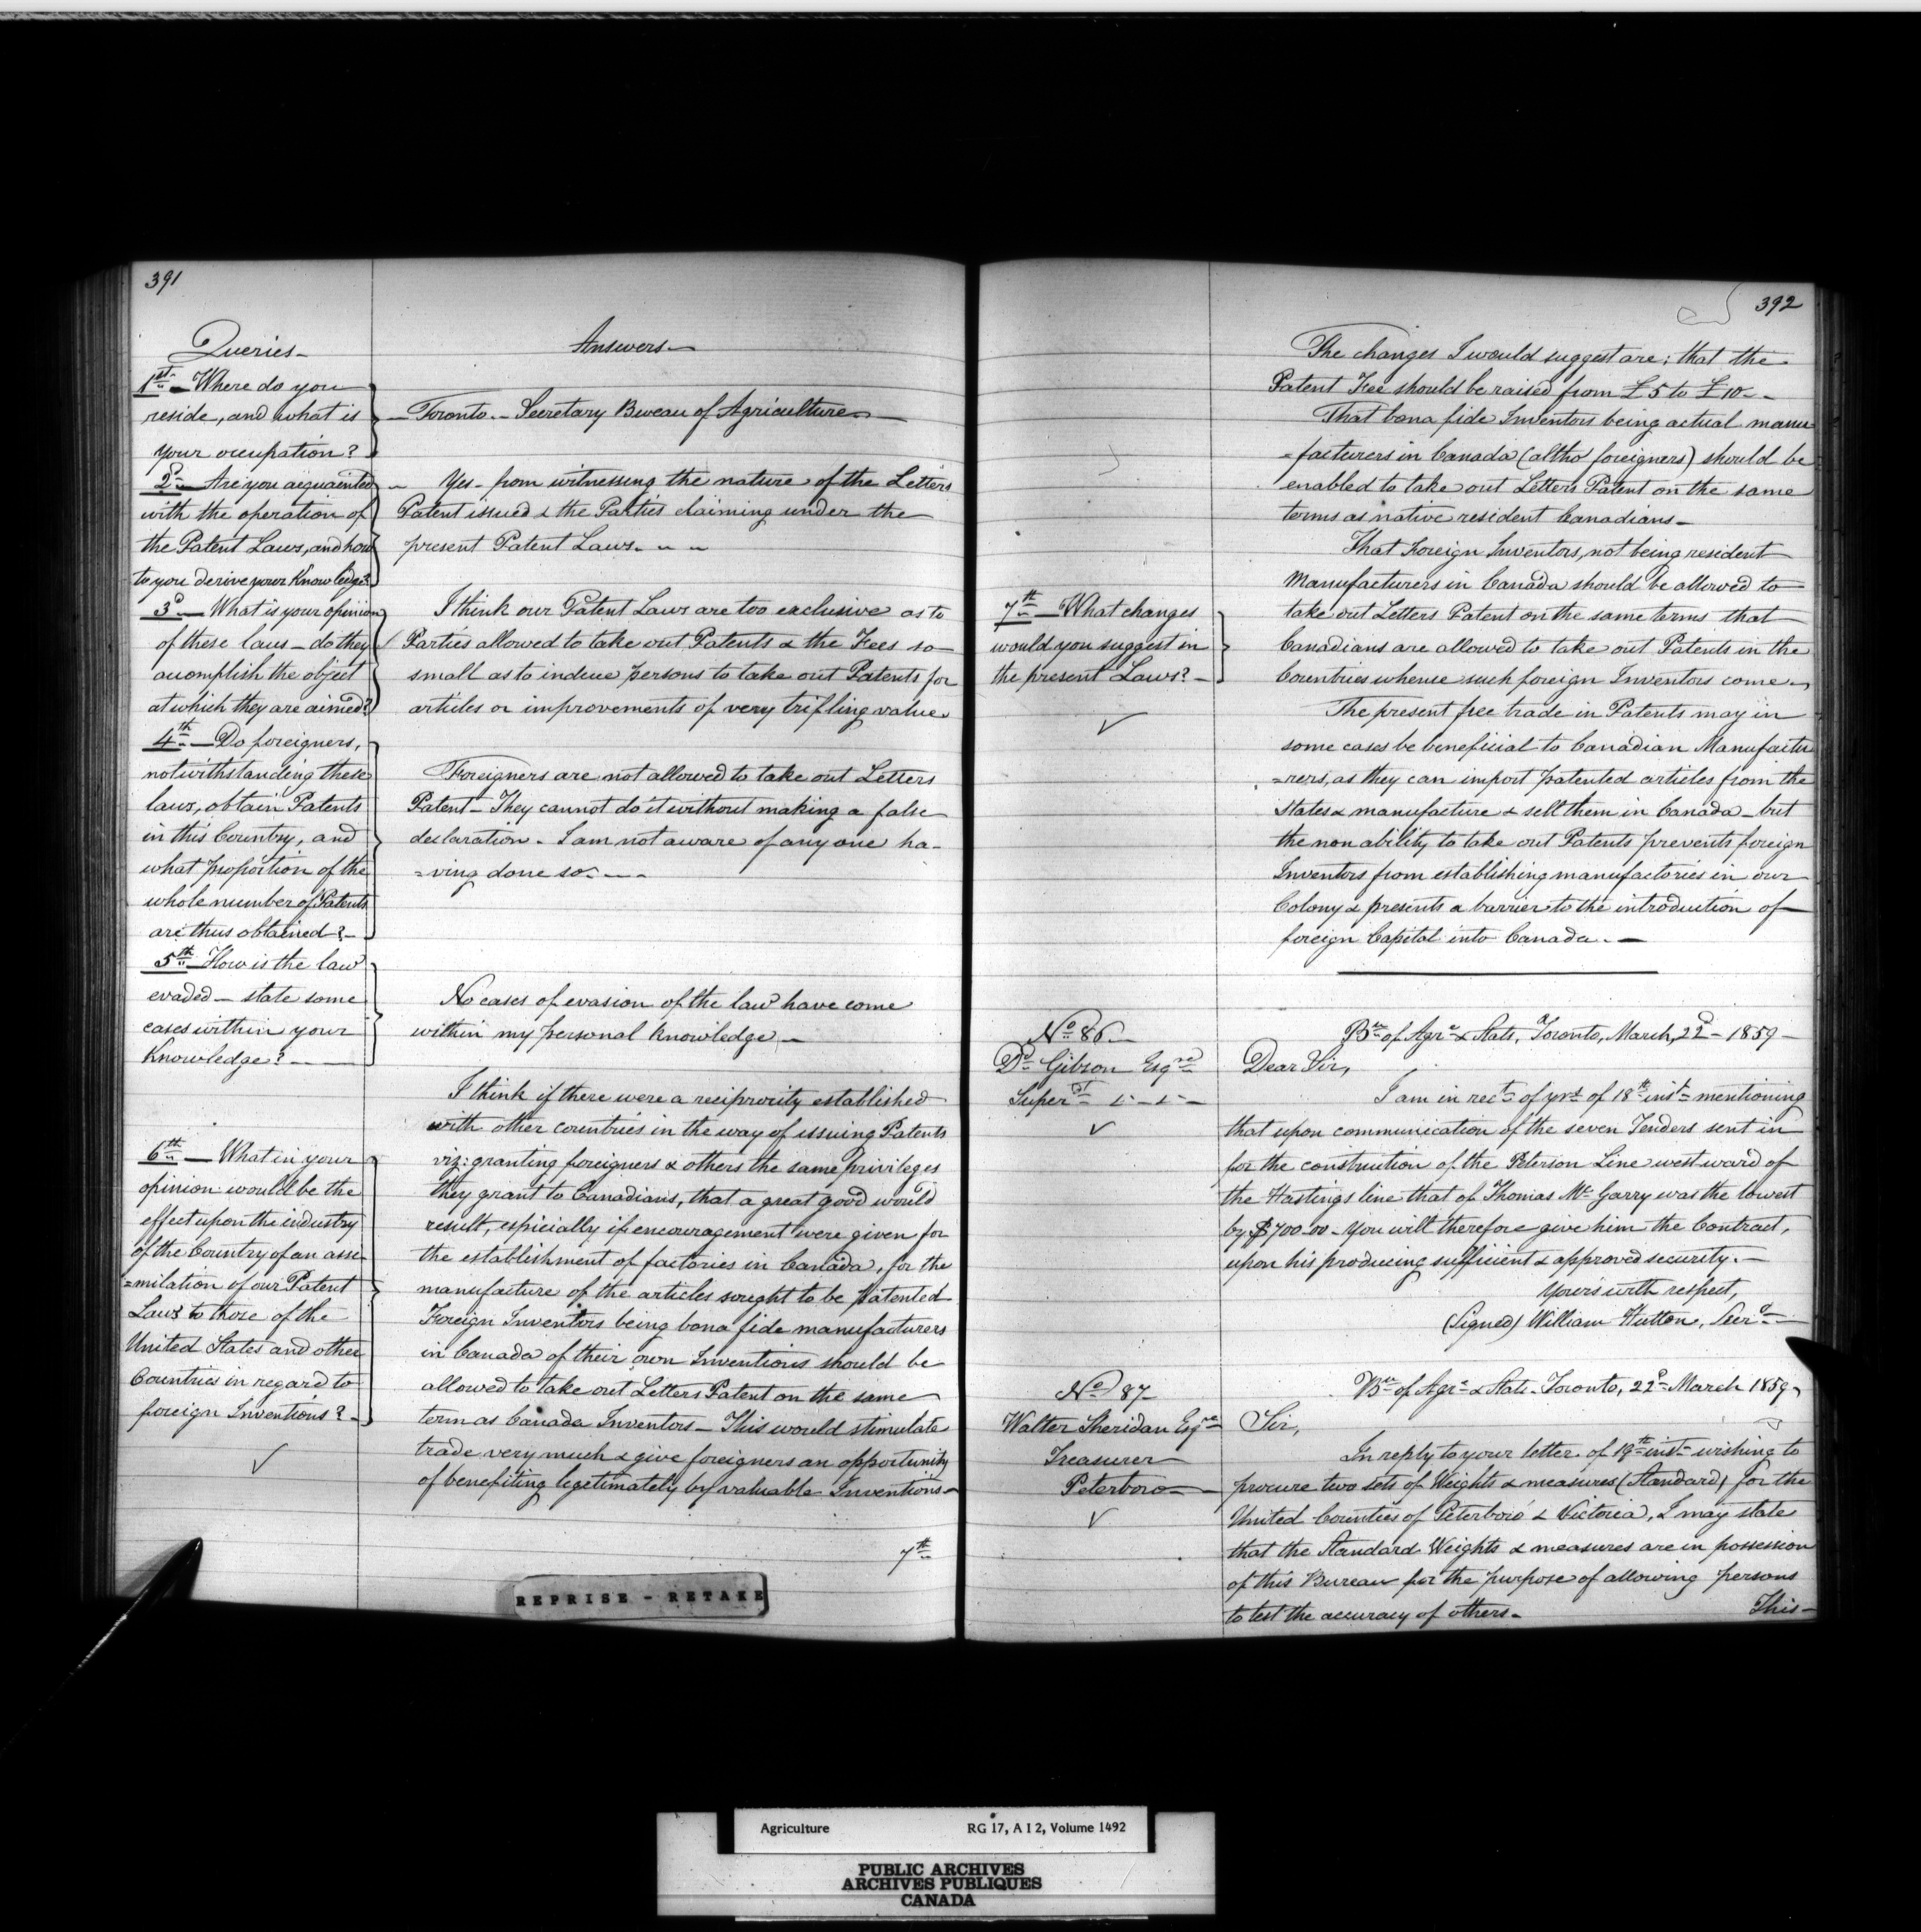 391
Queries
1st Where do you
reside, and what is
your occupation?
2d Are you acquainted
with the operation of
the Patent Laws, and how
to you derive your Knowledge?
3d What is your opinion
of these laws – do they
accomplish the object
at which they are aimed?
4th Do foreigners,
notwithstanding these
laws, obtain Patents
in this Country, and
what proportion of the
whole number of Patents
are thus obtained?
5th How is the law
evaded – state some
cases within your
Knowledge?
6th What in your
opinion would be the
effect upon the industry
of the Country of an assi-
=milation of our Patent
Laws to those of the
United States and other
Countries in regard to
foreign Inventions?
Answers
Toronto – Secretary Bureau of Agriculture
Yes – from witnessing the nature of the Letters
Patent issued & the Parties claiming under the
present Patent Laws.
I think our Patent Laws are too exclusive as to
Parties allowed to take out Patents & the Fees so
small as to induce persons to take out Patents for
articles or improvements of very trifling value
Foreigners are not allowed to take out Letters
Patent – They cannot do it without making a false
declaration – I am not aware of any one ha-
=ving done so
No cases of evasion of the law have come
within my personal Knowledge
I think if there were a reciprocity established
with other countries in the way of issuing Patents
viz: granting foreigners & others the same privileges
they grant to Canadians, that a great good would
result, especially if encouragement were given for
the establishment of factories in Canada, for the
manufacture of the articles sought to be patented
Foreign Inventors being bona fide manufacturers
in Canada of their own Inventions should be
allowed to take out Letters Patent on the same
term as Canada Inventors – This would stimulate
trade very much & give foreigners an opportunity
of benefiting legetimately by valuable Inventions
7th
REPRISE - RETAKE
392
7th What changes
would you suggest in
the present Laws?
The changes I would suggest are; that the
Patent Fee should be raised from £5 to £10
That bona fide Inventors being actual manu
=facturers in Canada (altho' foreigners) should be
enabled to take out Letters Patent on the same
terms as native resident Canadians
That Foreign Inventors, not being resident
Manufacturers in Canada should be allowed to
take out Letters Patent on the same terms that
Canadians are allowed to take out Patents in the
Countries whence such foreign Inventors come
The present free trade in Patents may in
some cases be beneficial to Canadian Manufactu
=rers, as they can import patented articles from the
States & manufacture & sell them in Canada – but
the non ability to take out Patents prevents foreign
Inventors from establishing manufactories in our
Colony & presents a barrier to the introduction of
foreign Capital into Canada.
No 86
Dd Gibson Esqre
Superdt
Bau of Agre & Stats, Toronto, March, 22d – 1859
Dear Sir,
I am in rect of yrs of 18th inst mentioning
that upon communication of the seven Tenders sent in
for the construction of the Peterson Line westward of
the Hastings line that of Thomas Mc Garry was the lowest
by $700.00 – You will therefore give him the Contract,
upon his producing sufficient & approved security.
Yours with respect,
(Signed) William Hutton, Secry
No 87
Walter Sheridan Esqre
Treasurer
Peterboro
Bau of Agre & Stats Toronto, 22d March 1859
Sir,
In reply to your letter of 19th inst wishing to
procure two sets of Weights & measures (Standard) for the
United Counties of Peterboro' & Victoria, I may state
that the Standard Weights & measures are in possession
of this Bureau for the purpose of allowing persons
to test the accuracy of others.
This
Agriculture RG 17, A I 2, Volume 1492
PUBLIC ARCHIVES
ARCHIVES PUBLIQUES
CANADA